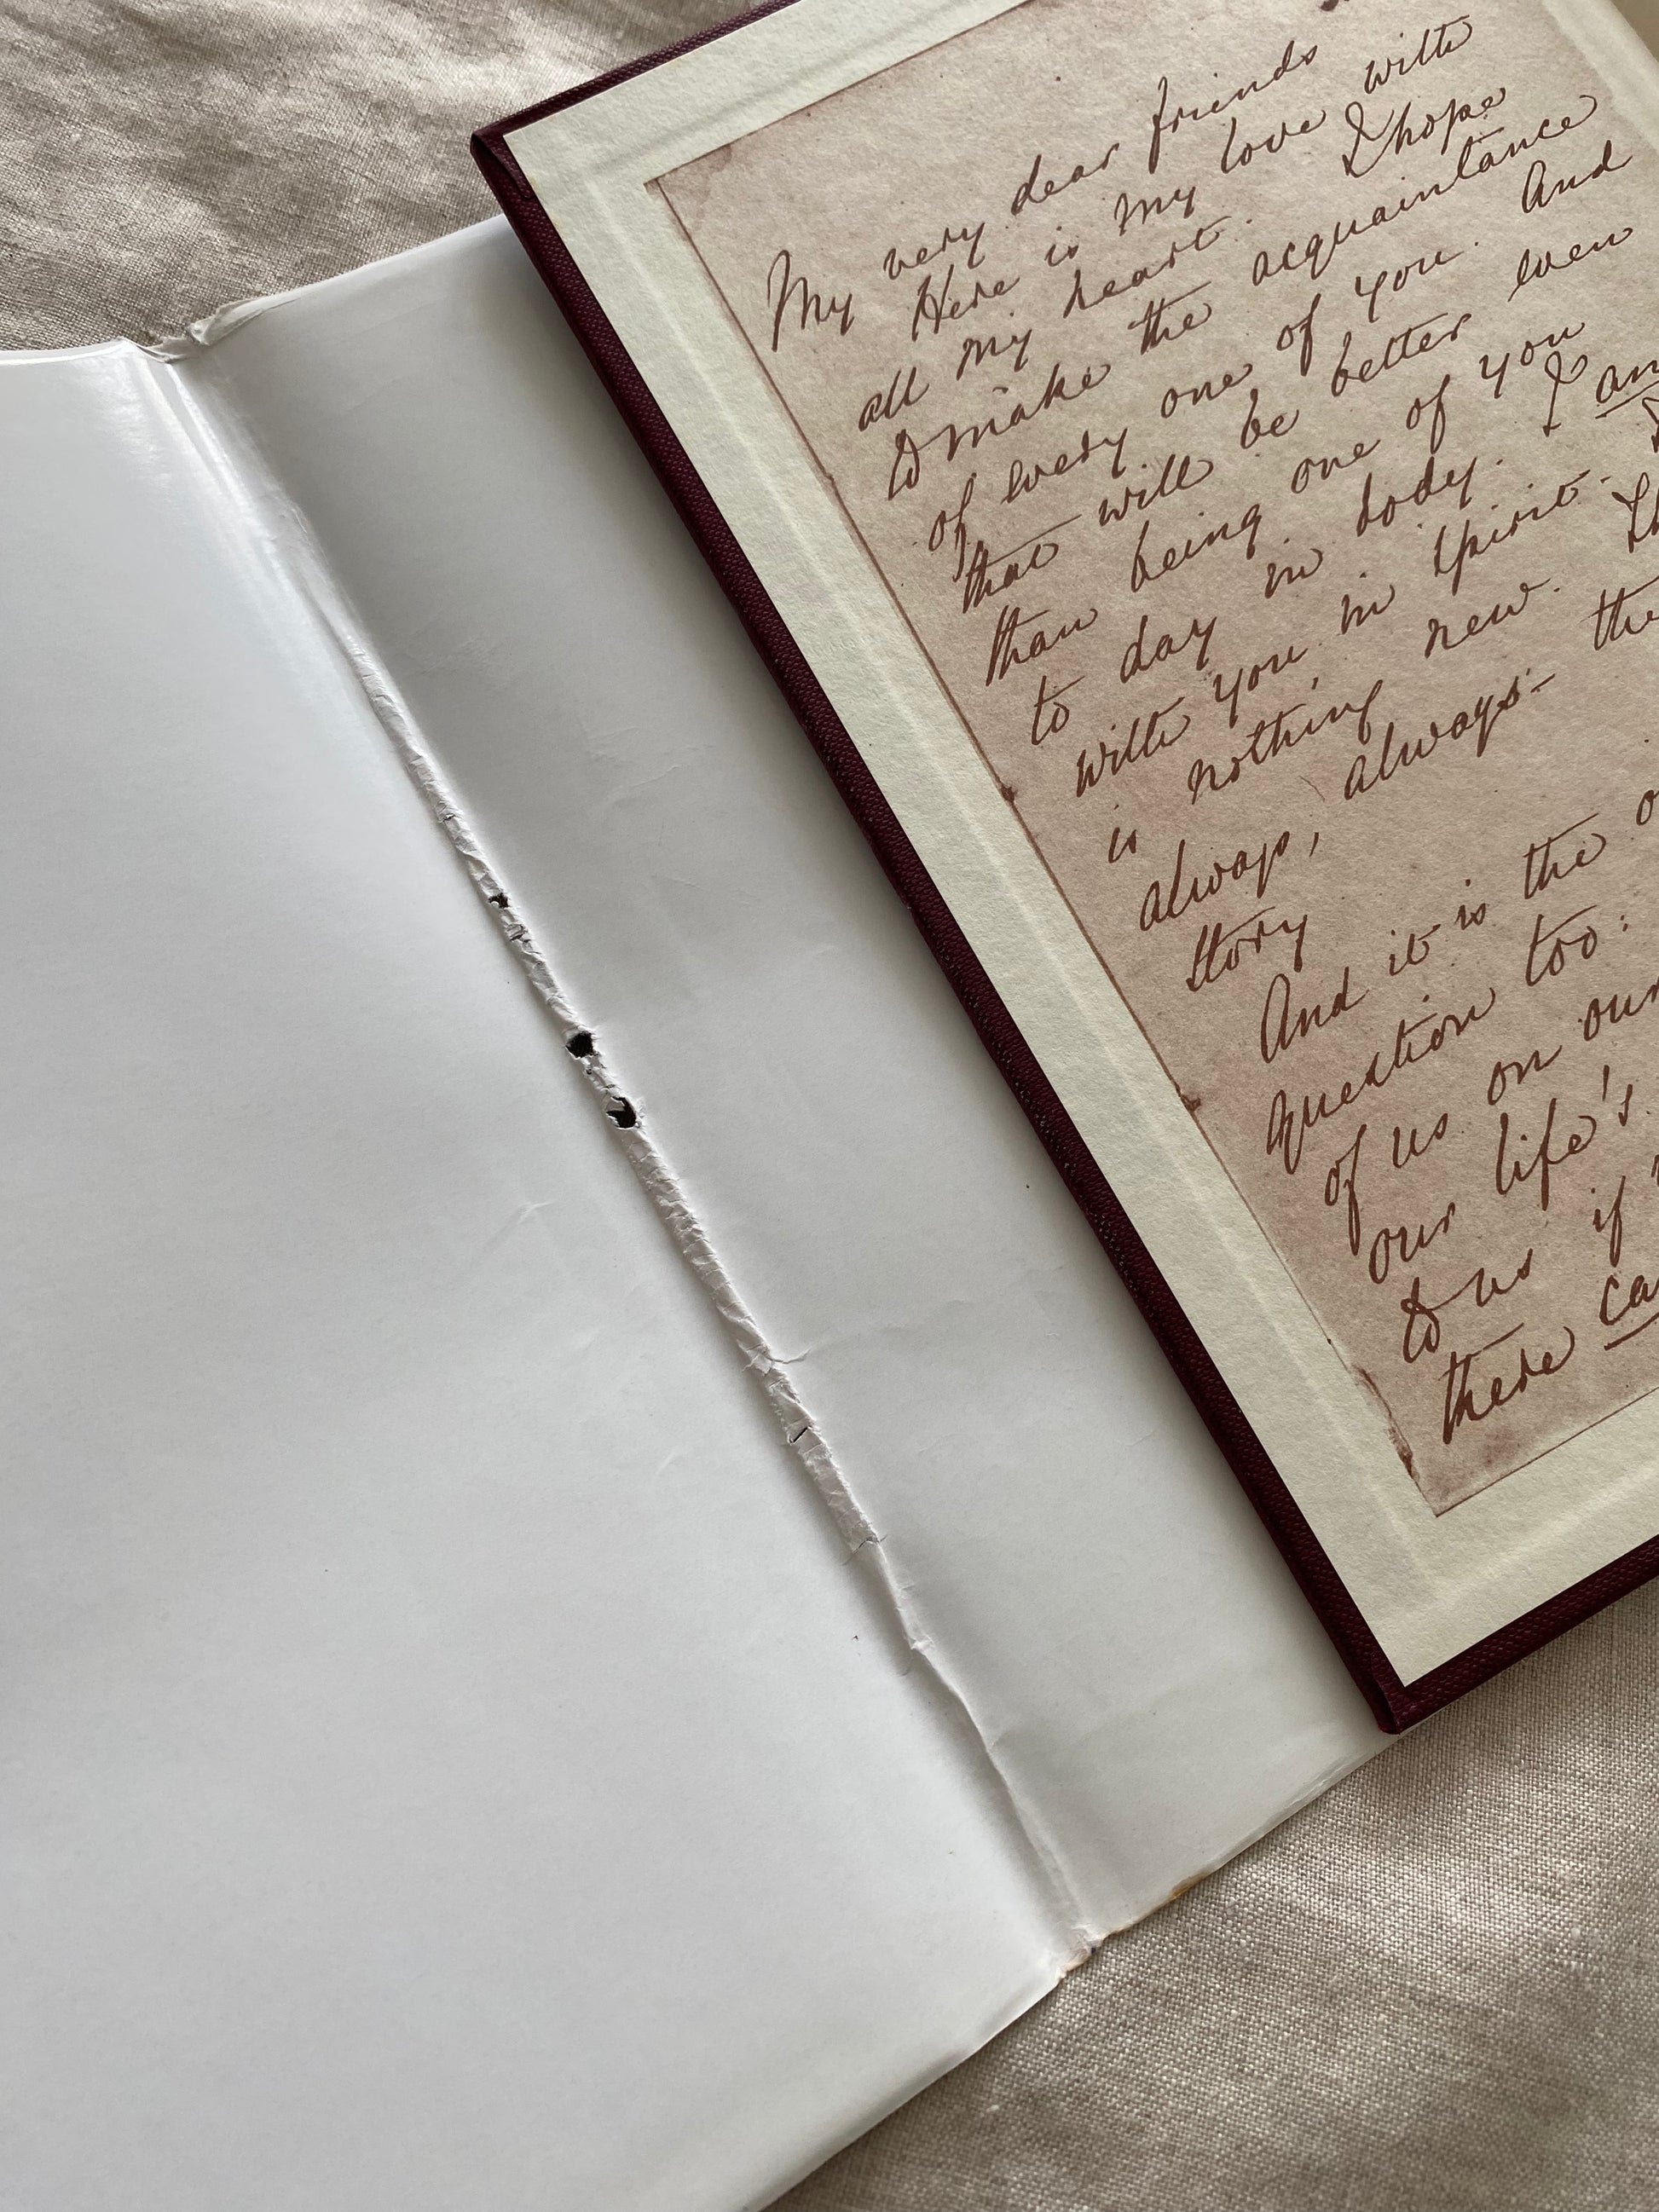 My very dear friends
Here is my love with
all my heart. I hope
to make the acquaintance
of every one of you. And
that will be better even
than being one of you
to day in body. I am
with you in spirit.
is nothing new.
always, always- the
story
And it is the
question too:
of us on our
our life's
to us if
there